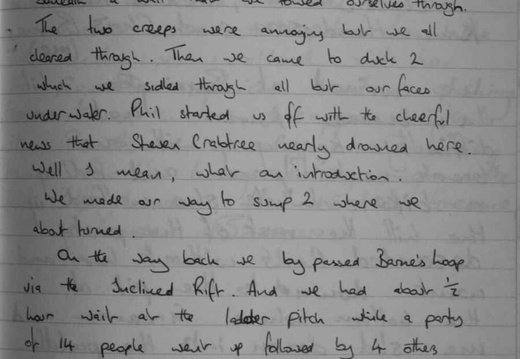 beneath a wall that we towed ourselves through.
The two creeps were annoying but we all
cleared through. Then we came to duck 2
which we sidled through all but our faces
underwater. Phil started us off with the cheerful
news that Steven Crabtree nearly drowned here.
Well I mean, what an introduction.
We made our way to sump 2 where we
about turned.
On the way back we by passed Barne's Loop
via the Inclined Rift. And we had about ½
hour wait at the ladder pitch while a party
of 14 people went up followed by 4 others